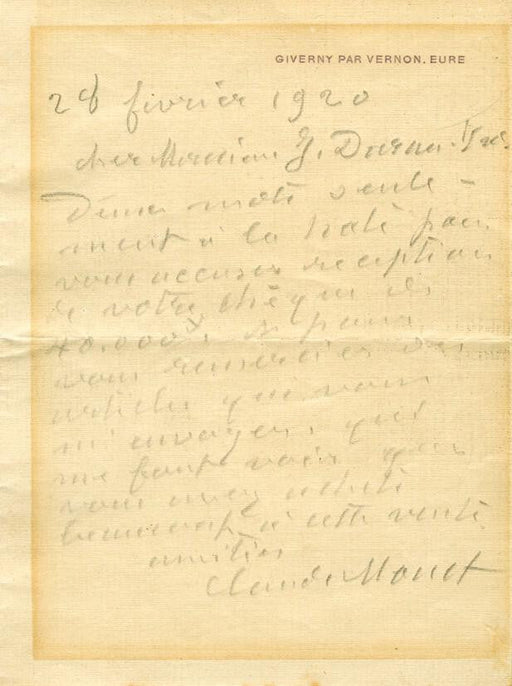 GIVERNY PAR VERNON. EURE
28 février 1920
cher Monsieur G. Duran-Ruel
Deux mots seule-
ment à la hate pour
vous accuser réception
de votre chèque de
40.000 fs et pour
vous remercier des
articles que vous
m'envoyez, qui
me font voir que
vous avez acheté
beaucoup à cette vente.
amitiés
Claude Monet